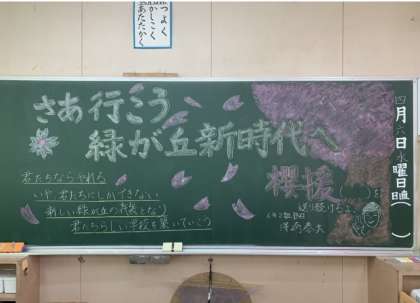 つよく
かしこく
あたたかく
さあ行こう
緑が丘新時代へ
君たちならやれる
いや君たちにしかできない
新しい緑が丘の
君たちらしい学校を築いていこう
櫻援
を
四月六日水曜日